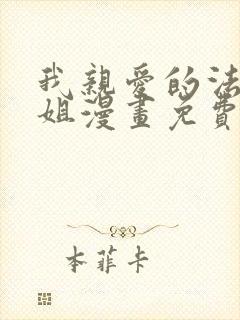 我親愛的法
姐漫畫免費
本菲卡